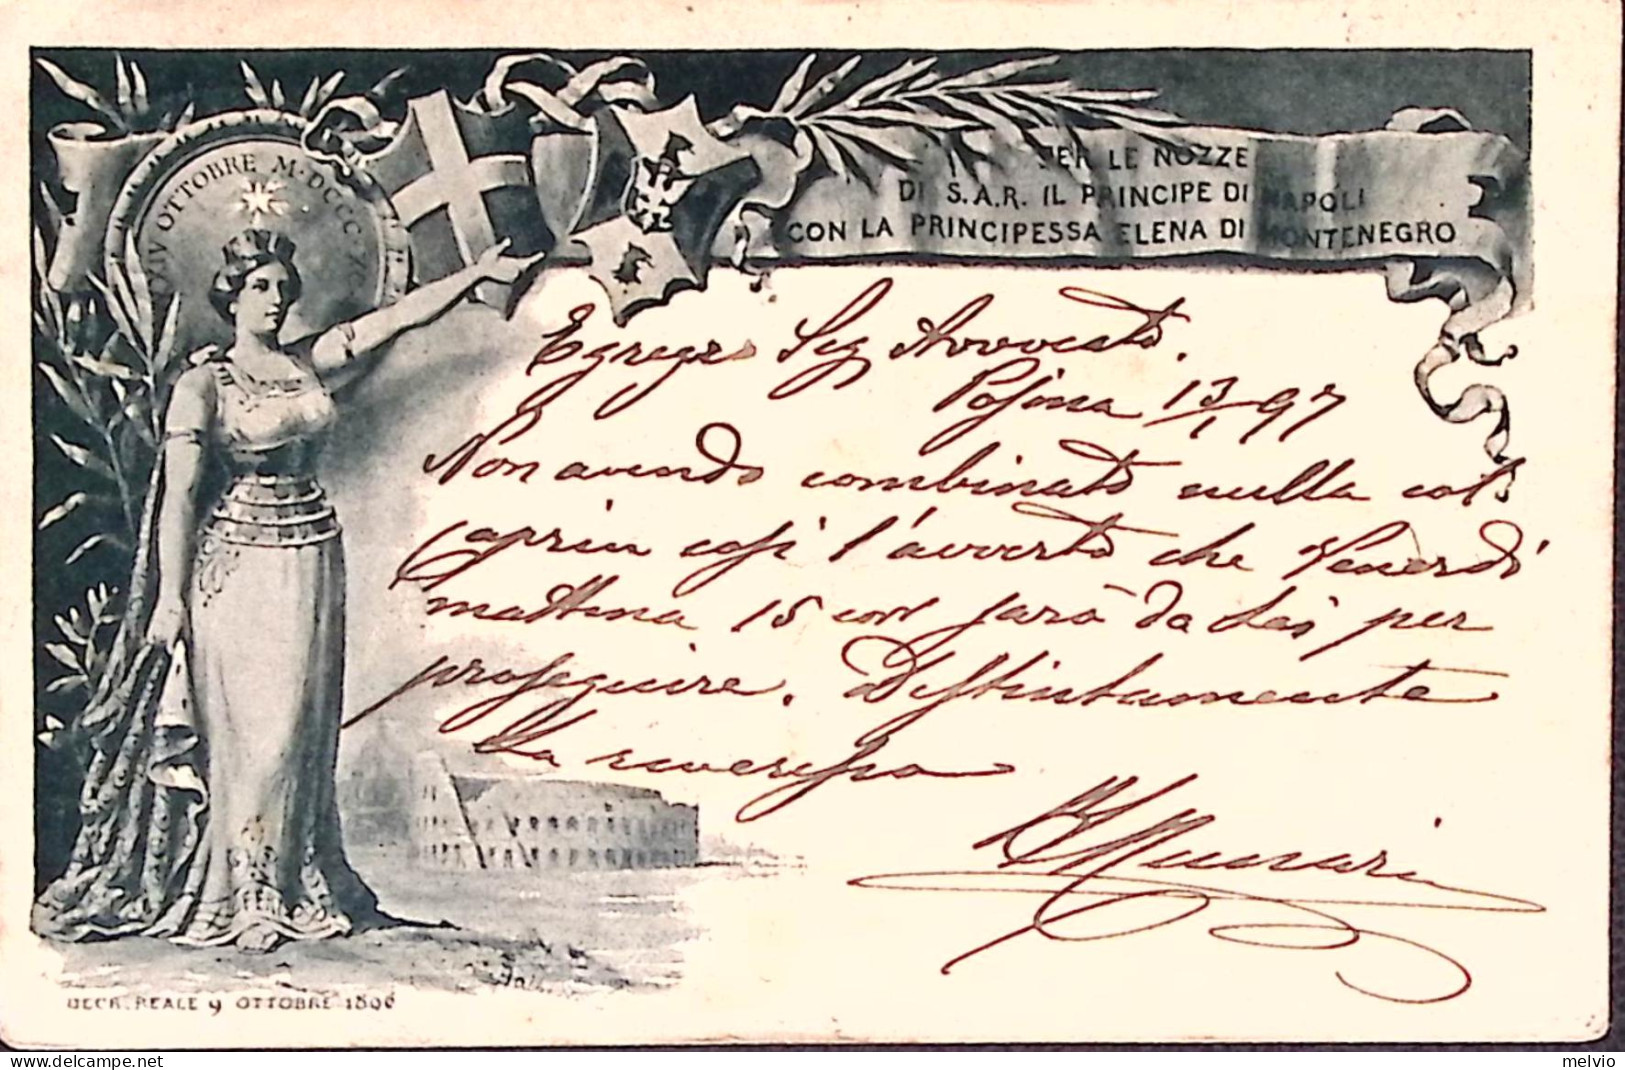 PER LE NOZZE
DI S.A.R. IL PRINCIPE DI NAPOLI
CON LA PRINCIPESSA ELENA DI MONTENEGRO
XXIV OTTOBRE M·DCCC·XC
Egregio Sig Avvocato.
Posina 13/1 97
Non avendo combinato nulla col
Caprin così l'averto che Venerdì
mattina 15 cor sarò da Lei per
proseguire. Distintamente
La riverisco
Munari
FERT
DECR. REALE 9 OTTOBRE 1896
melvio